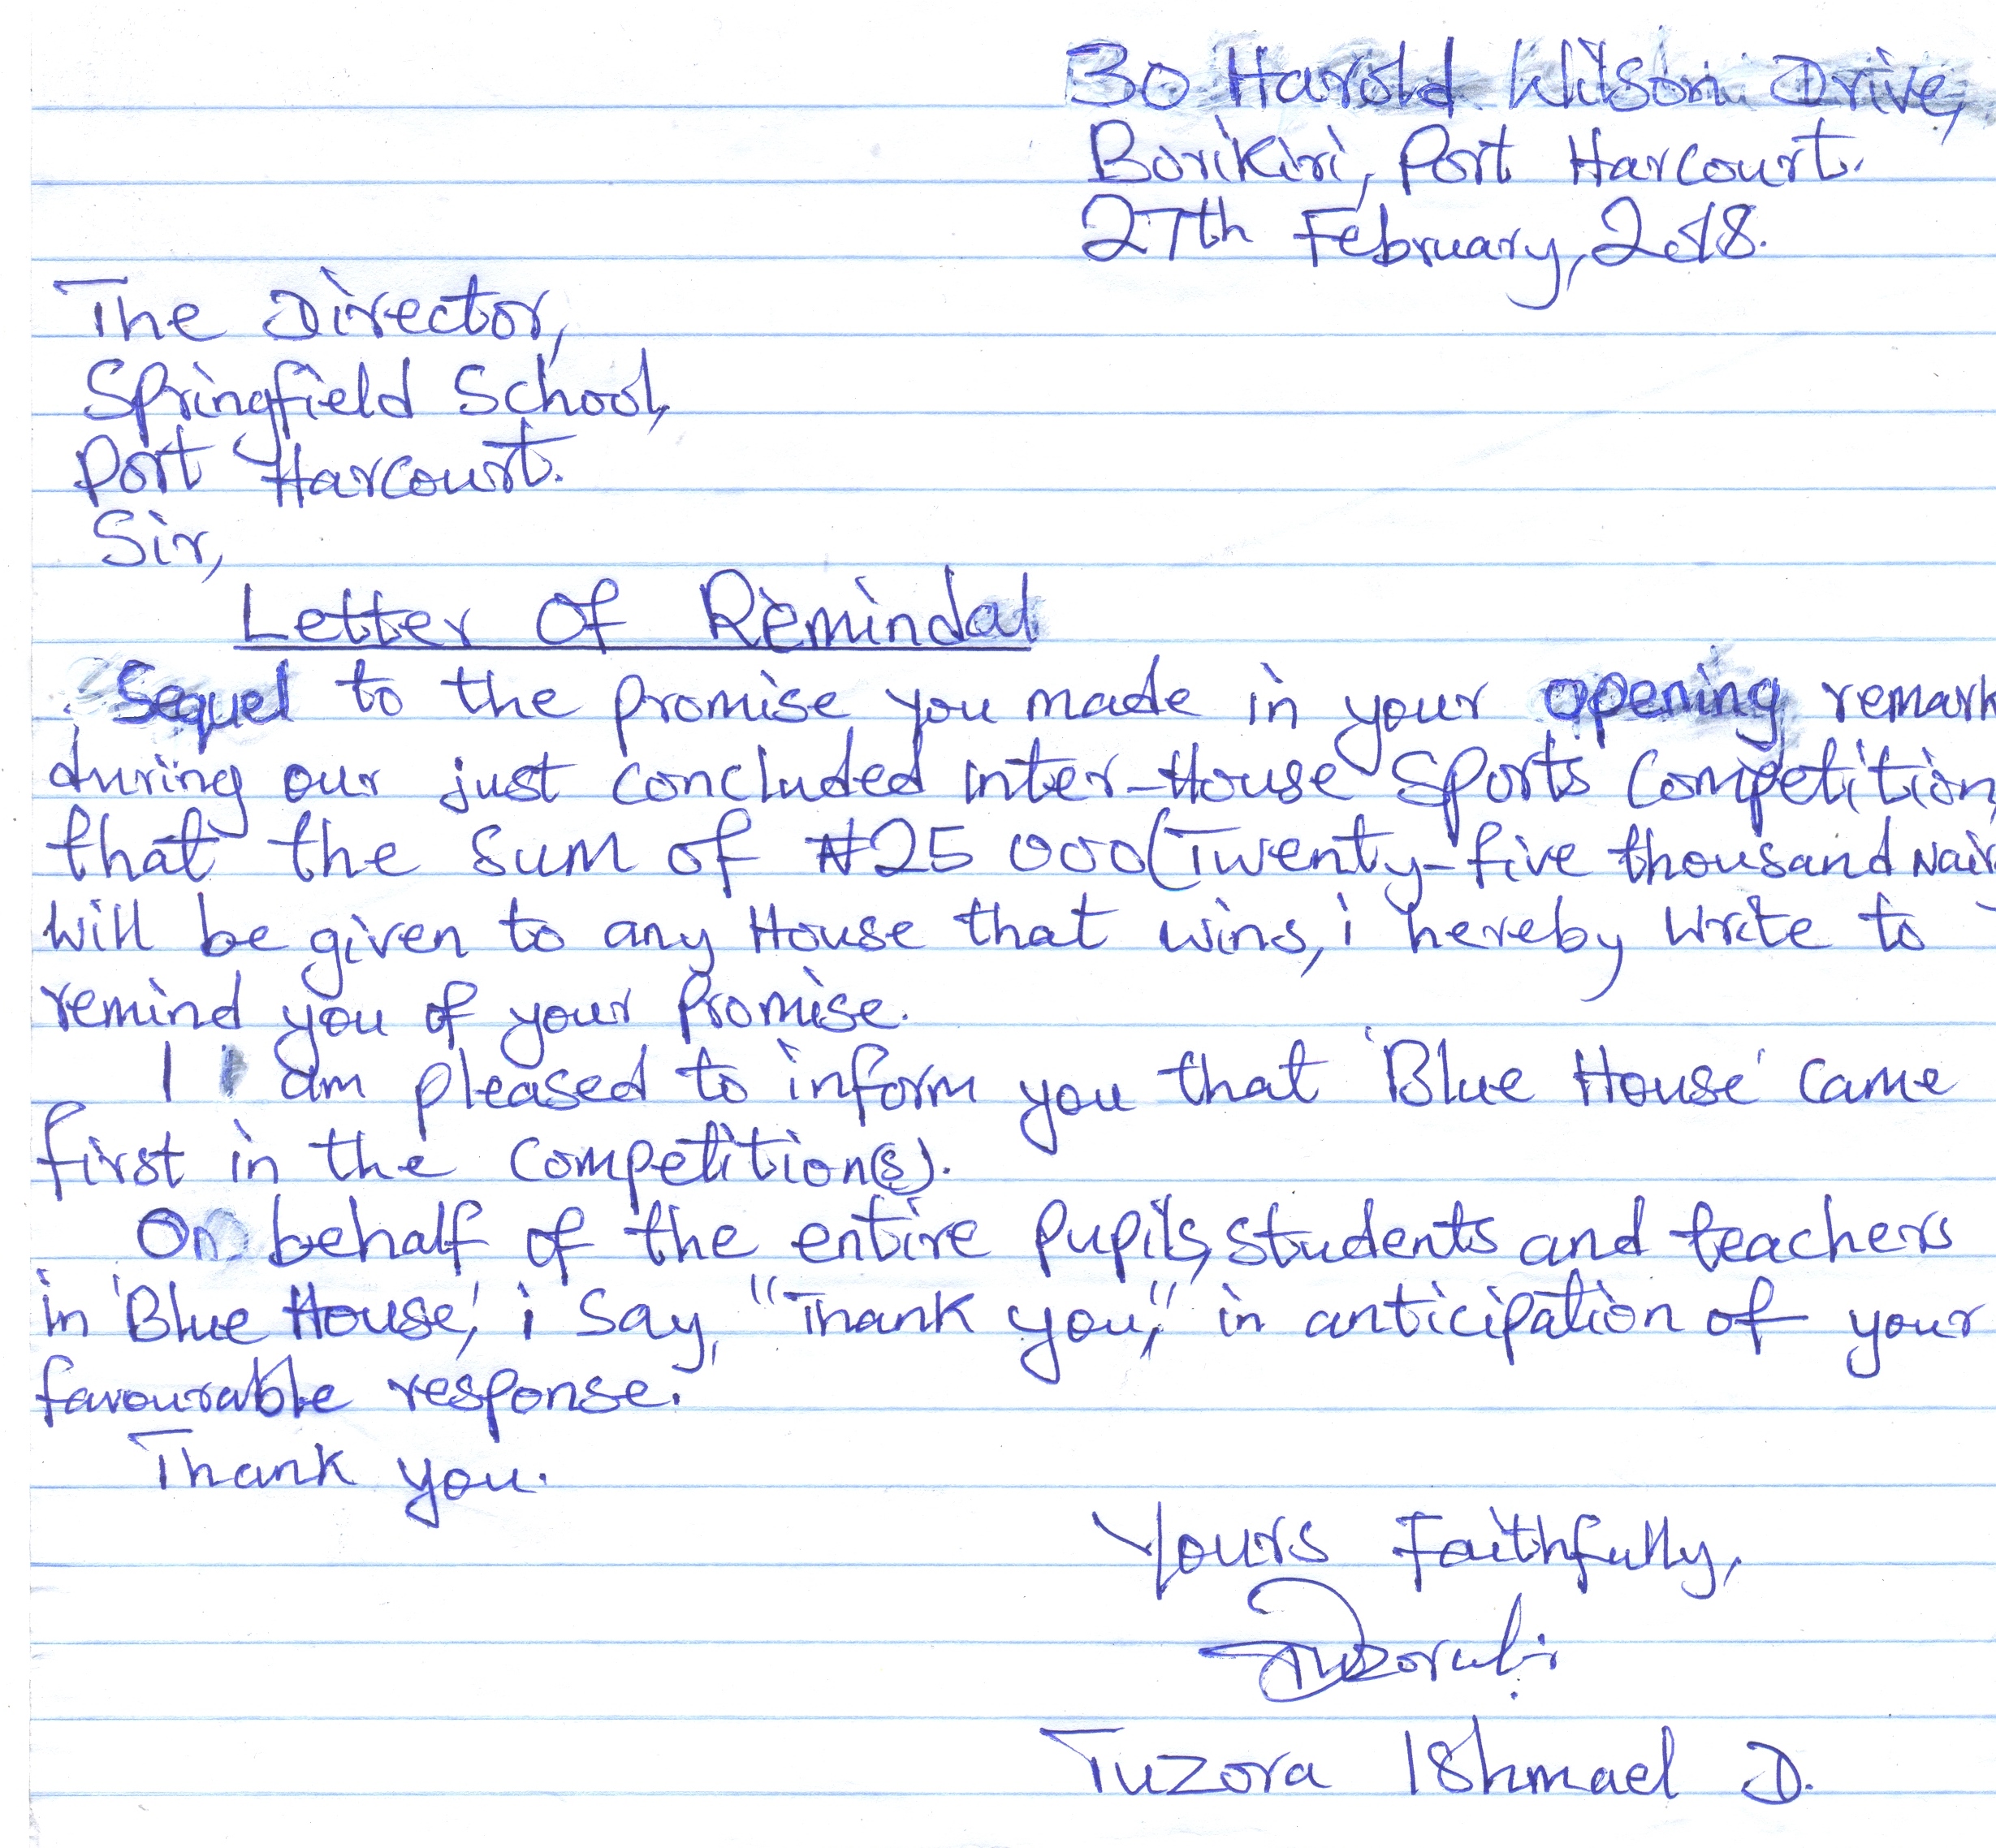 30 Harold Wilson Drive,
Borikiri, Port Harcourt.
27th February, 2018.
The Director,
Springfield School,
Port Harcourt.
Sir,
Letter Of Remindal
Sequel to the promise you made in your opening remark
during our just concluded inter-House Sports Competition,
that the sum of ₦25 000 (Twenty-five thousand Nair
will be given to any House that wins, i hereby write to
remind you of your promise.
I am pleased to inform you that 'Blue House' came
first in the competition(s).
On behalf of the entire pupils, students and teachers
in 'Blue House', i say, "Thank you," in anticipation of your
favourable response.
Thank you.
Yours Faithfully,
Tuzora Ishmael D.